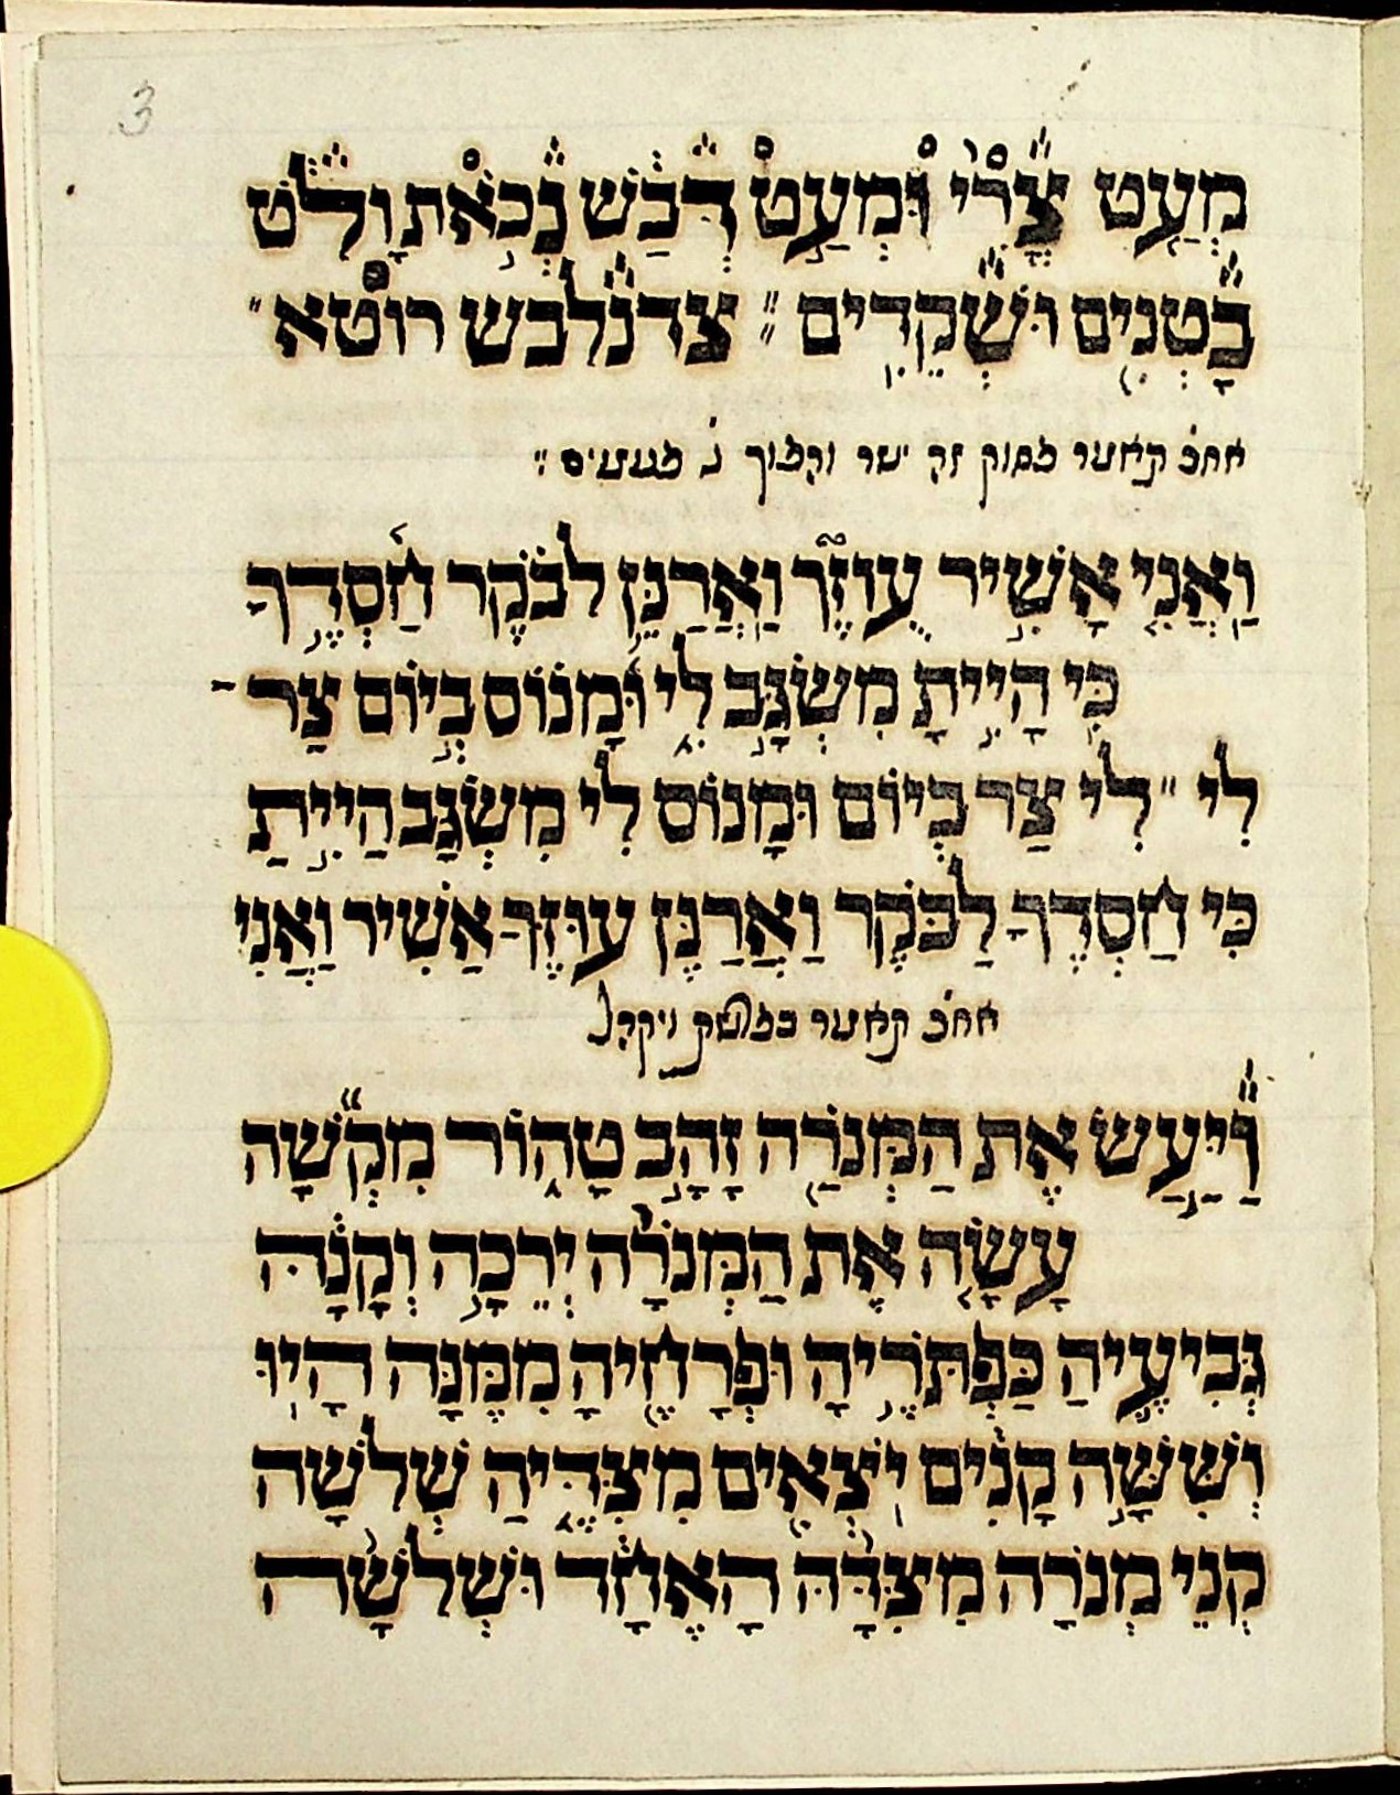 3
מְעַט צֳרִי וּמְעַט דְּבַשׁ נְכֹאת וָלֹט
בָּטְנִים וּשְׁקֵדִים ״ צדנלבש רוטא ״
אחכ קאער פסוק זה ישר והפוך ג׳ פעעים ״
וַאֲנִי אָשִׁיר עֻוזֶּךָ וַאֲרַנֵּן לבֹּקֶר חַסְדֶּךָ
כִּי הָיִיתָ מִשְׂגָּב לִי וּמָנוֹס בְּיוֹם צַר -
לִי ״ לִי צַר בְּיוֹם וּמָנוֹס לִי מִשְׂגָּב הַיִיתַ
כִּי חַסְדֶּךָ לַבֹּקֶר וַאֲרַנֶּן עוּזֶּךָ אַשִׁיר וַאֲנִי
אחכ קאער
וַיַּעַשׂ אֶת הַמְּנֹרָה זָהָב טָהוֹר מִקְשָׁה
עָשָׂה אֶת הַמְּנֹרָה יְרֵכָהּ וְקָנָהּ
גְּבִיעֶיהַ כַּפְתֹּרֶיהָ וּפְרָחֶיהָ מִמֶּנָּה הָיוּ
וְשִׁשָּׁה קָנִים יֹצְאִים מִצִּדֶּיהַ שְׁלשָׁה
קְנֵי מְנֹרָה מִצִּדָּהּ הָאֶחָד וּשְׁלשָׁה